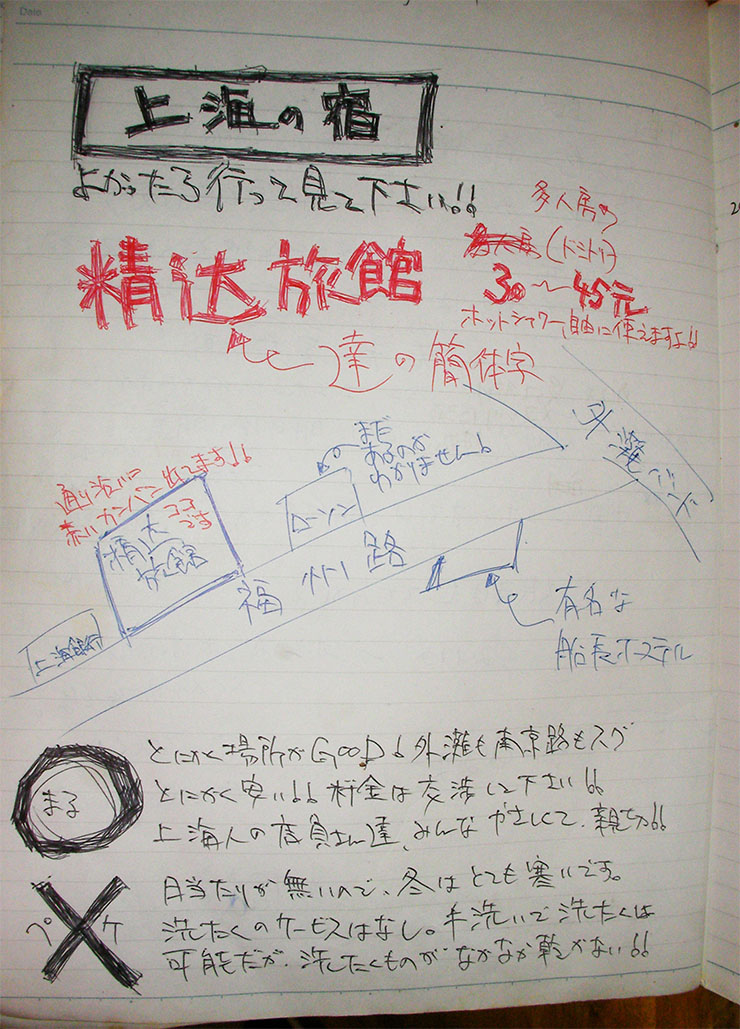 Date
上海の宿
よかったら行って見て下さい!!
多人房
(ドミトリー)
30〜45元
ホットシャワー自由に使えますよ!!
精达旅館
達の簡体字
外灘バンド
まだ
あるのか
わかりません!
ローソン
通り沿いに
赤いカンバン出てます!!
ココ
です
精达
旅館
福州路
上海銀行
有名な
船長ホステル
まる
とにかく場所がGOOD!外灘も南京路もスグ
とにかく安い!!料金は交渉して下さい!!
上海人の店員さん達、みんなやさしくて、親切!!
ペケ
日当たりが無いので、冬はとても寒いです。
洗たくのサービスはなし。手洗いで洗たくは
可能だが、洗たくものがなかなか乾かない!!